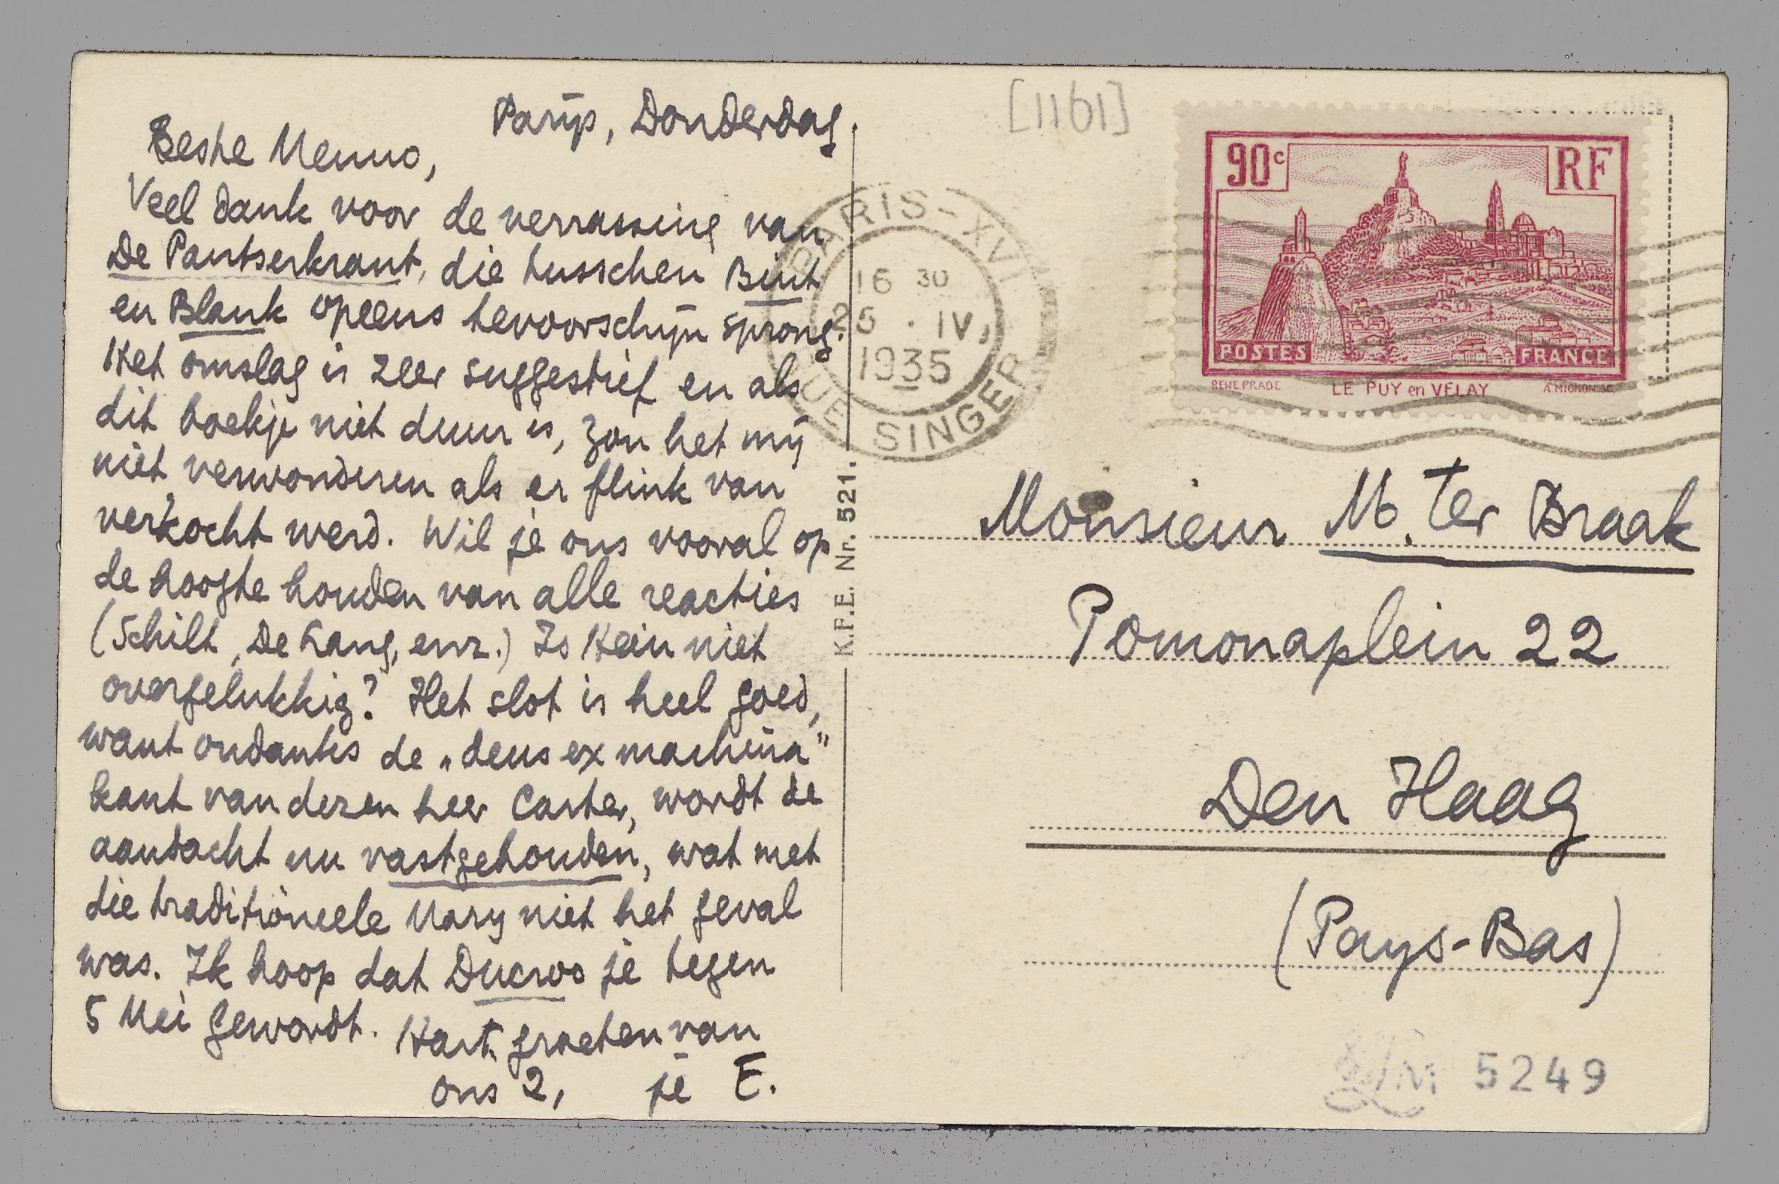 Parijs, Donderdag.
Beste Menno,
Veel dank voor de verrassing van
De Pantserkrant, die tusschen Bint
en Blank opeens tevoorschijn sprong.
Het omslag is zeer suggestief en als
dit boekje niet duur is, zou het mij
niet verwonderen als er flink van
verkocht werd. Wil je ons vooral op
de hoogte houden van alle reacties
(Schilt, De Lang, enz.) Is Hein niet
overgelukkig? Het slot is heel goed,
want ondanks de „deus ex machina"
kant van dezen heer Carter, wordt de
aandacht nu vastgehouden, wat met
die traditioneele Mary niet het geval
was. Ik hoop dat Ducroo je tegen
5 Mei gewordt. Hart. groeten van
ons 2, je E.
K.F.E. Nr. 521.
[1161]
PARIS-XVI
16 30
25 . IV,
1935
RUE SINGER
90c RF
POSTES FRANCE
RENE PRADE LE PUY en VELAY A.MIGNON.SC.
Monsieur M. ter Braak
Pomonaplein 22
Den Haag
(Pays-Bas)
LM 5249